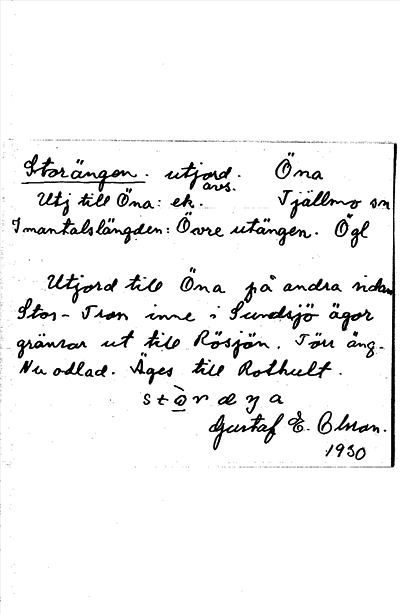 Storängen. utjord. Öna
avs.
Utj till Öna: ek. Tjällmo sn
I mantalslängden: Övre utängen. Ögl
Utjord till Öna på andra sidan
Stor-Tron inne i Sundsjö ägor
gränsar ut till Rösjön. Torr äng.
Nu odlad. Äges till Rothult.
Gustaf E. Olsson.
1930